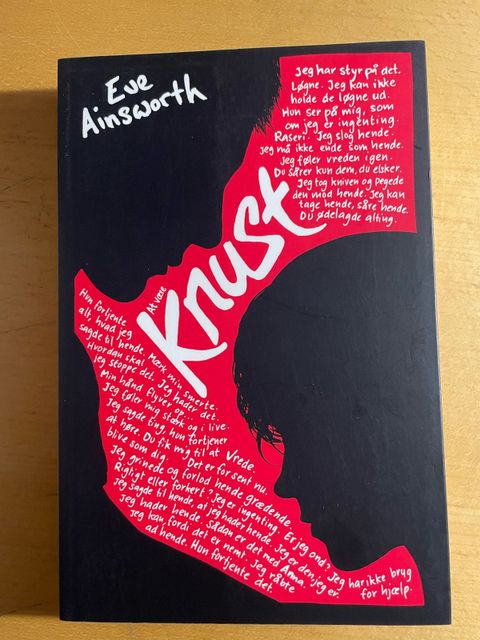 Eve
Ainsworth
Jeg har styr på det.
Løgne. Jeg kan ikke
holde de løgne ud.
Hun ser på mig, som
om jeg er ingenting.
Raseri. Jeg slog hende.
Jeg må ikke ende som hende.
Jeg føler vreden igen.
Du sårer kun dem, du elsker.
Jeg tog kniven og pegede
den mod hende. Jeg kan
tage hende, såre hende.
Du ødelagde alting.
At være
Knust
Hun fortjente
alt, hvad jeg
sagde til hende. Mærk min smerte.
Hvordan skal jeg hader det.
jeg stoppe det.
Min hånd flyver op...
Jeg føler mig stærk og i live.
Jeg sagde ting, hun fortjener
at høre. Du fik mig til at Vrede.
blive som dig. Det er for sent nu.
Jeg grinede og forlod hende grædende.
Rigtigt eller forkert? Jeg er ingenting. Er jeg ond?
Jeg sagde til hende, at jeg hader hende. Jeg er den, jeg er.
Jeg hader hende. Sådan er det med Anna. Jeg har ikke brug
Jeg kan, fordi det er nemt. Jeg råbte for hjælp.
ad hende. Hun fortjente det.